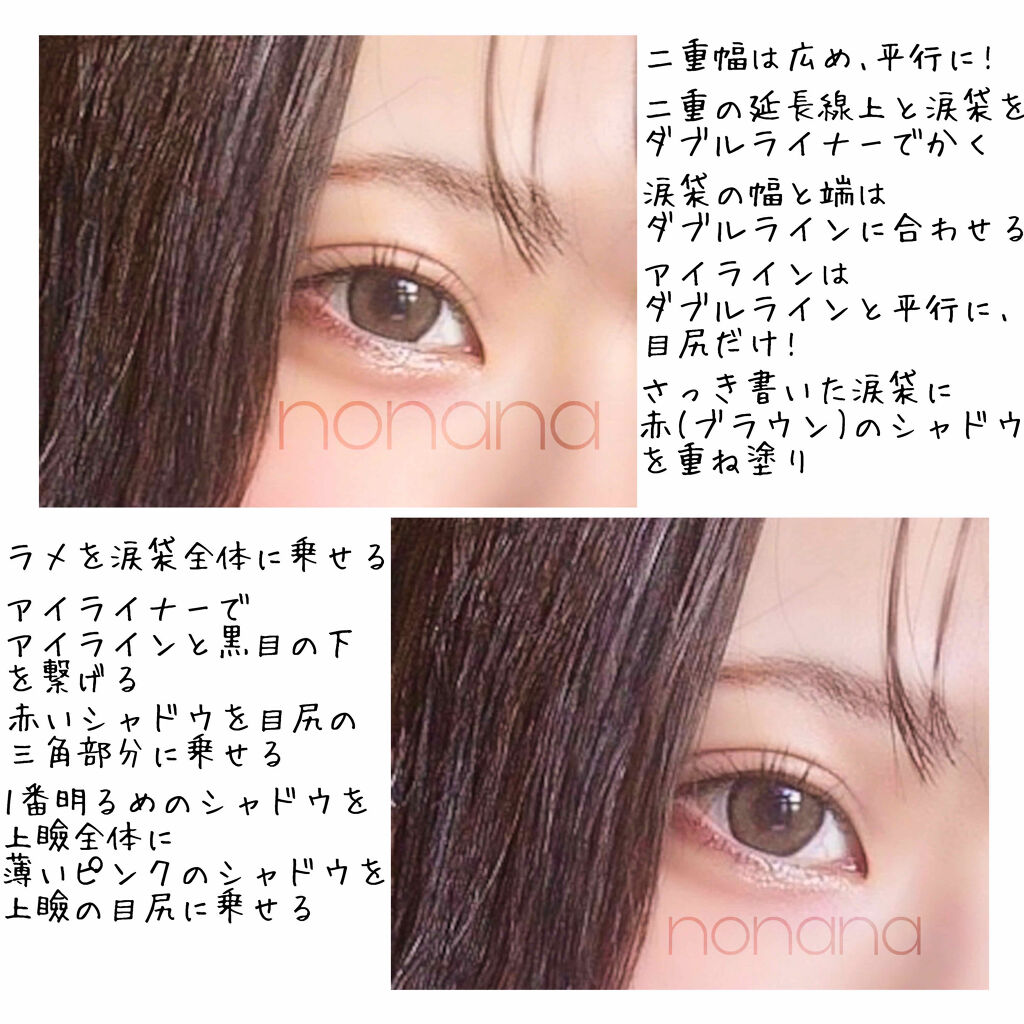 二重幅は広め、平行に!
二重の延長線上と涙袋を
ダブルライナーでかく
涙袋の幅と端は
ダブルラインに合わせる
アイラインは
ダブルラインと平行に、
目尻だけ!
さっき書いた涙袋に
赤(ブラウン)のシャドウ
を重ね塗り
nonana
ラメを涙袋全体に乗せる
アイライナーで
アイラインと黒目の下
を繋げる
赤いシャドウを目尻の
三角部分に乗せる
1番明るめのシャドウを
上瞼全体に
薄いピンクのシャドウを
上瞼の目尻に乗せる
nonana